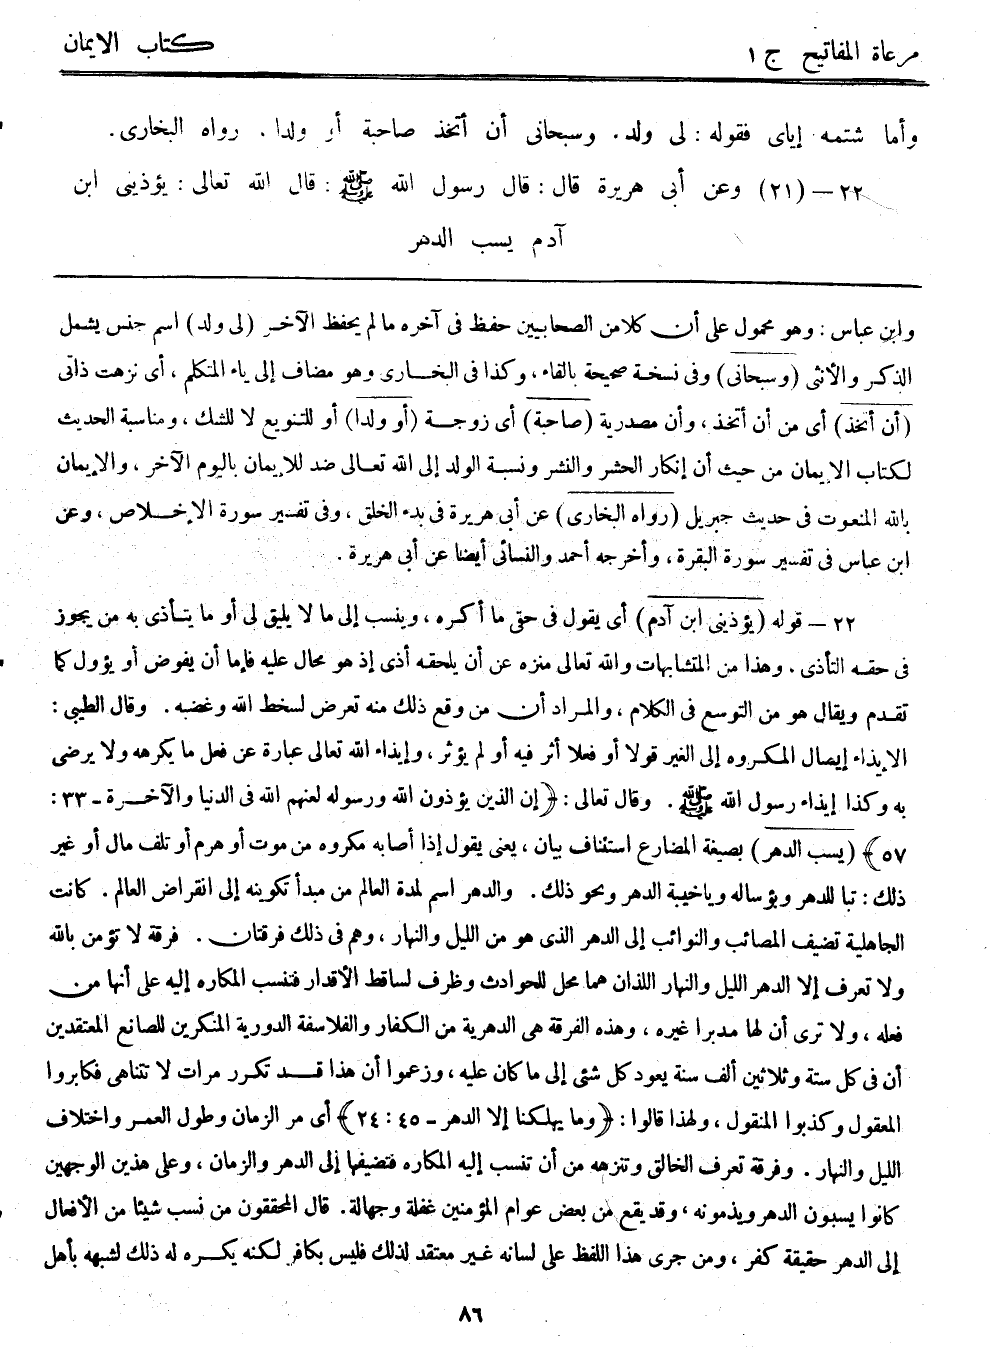 مرعاة المفاتيح ج ١
كتاب الايمان
وأما شتمه إياى فقوله : لى ولد . وسبحانى أن أتخذ صاحبة أو ولدا . رواه البخارى .
٢٢ – (٢١) وعن أبى هريرة قال : قال رسول الله ﷺ : قال الله تعالى : يؤذينى ابن
آدم يسب الدهر
وابن عباس : وهو محمول على أن كلا من الصحابيين حفظ فى آخره ما لم يحفظ الآخر (لى ولد) اسم جنس يشمل
الذكر والأنثى (وسبحانى) وفى نسخة صحيحة بالفاء ، وكذا فى البخارى وهو مضاف إلى ياء المتكلم ، أى نزهت ذاتى
(أن أتخذ) أى من أن أتخذ ، وأن مصدرية (صاحبة) أى زوجة (أو ولدا) أو للتنويع لا للشك ، ومناسبة الحديث
لكتاب الايمان من حيث أن إنكار الحشر والنشر ونسبة الولد إلى الله تعالى ضد للايمان باليوم الآخر ، والإيمان
بالله المنعوت فى حديث جبريل (رواه البخارى) عن أبى هريرة فى بدء الخلق ، وفى تفسير سورة الاخلاص ، وعن
ابن عباس فى تفسير سورة البقرة ، وأخرجه أحمد والنسائى أيضا عن أبى هريرة .
٢٢ – قوله (يؤذينى ابن آدم) أى يقول فى حقى ما أكره ، وينسب إلى ما لا يليق لى أو ما يتأذى به من يجوز
فى حقه التأذى . وهذا من المتشابهات والله تعالى منزه عن أن يلحقه أذى إذ هو محال عليه فإما أن يفوض أو يؤول كما
تقدم ويقال هو من التوسع فى الكلام ، والمراد أن من وقع ذلك منه تعرض لسخط الله وغضبه . وقال الطيبى :
الايذاء إيصال المكروه إلى الغير قولا أو فعلا أثر فيه أو لم يؤثر ، وإيذاء الله تعالى عبارة عن فعل ما يكرهه ولا يرضى
به وكذا إيذاء رسول الله ﷺ . وقال تعالى : ﴿إن الذين يؤذون الله ورسوله لعنهم الله فى الدنيا والآخرة – ٣٣ :
٥٧﴾ (يسب الدهر) بصيغة المضارع استئناف بيان ، يعنى يقول إذا أصابه مكروه من موت أو هرم أو تلف مال أو غير
ذلك : تبا للدهر وبؤسا له وياخيبة الدهر ونحو ذلك . والدهر اسم لمدة العالم من مبدأ تكوينه إلى انقراض العالم . كانت
الجاهلية تضيف المصائب والنوائب إلى الدهر الذى هو من الليل والنهار ، وهم فى ذلك فرقتان . فرقة لا تؤمن بالله
ولا تعرف إلا الدهر الليل والنهار اللذان هما محل للحوادث وظرف لساقط الأقدار فتنسب المكاره إليه على أنها من
فعله ، ولا ترى أن لها مدبرا غيره ، وهذه الفرقة هى الدهرية من الكفار والفلاسفة الدورية المنكرين للصانع المعتقدين
أن فى كل ستة وثلاثين ألف سنة يعود كل شئى إلى ما كان عليه ، وزعموا أن هذا قد تكرر مرات لا تتناهى فكابروا
المعقول وكذبوا المنقول ، ولهذا قالوا : ﴿وما يهلكنا إلا الدهر – ٤٥ : ٢٤﴾ أى مر الزمان وطول العمر واختلاف
الليل والنهار . وفرقة تعرف الخالق وتنزهه من أن تنسب إليه المكاره فتضيفها إلى الدهر والزمان ، وعلى هذين الوجهين
كانوا يسبون الدهر ويذمونه ، وقد يقع من بعض عوام المؤمنين غفلة وجهالة . قال المحققون من نسب شيئا من الأفعال
إلى الدهر حقيقة كفر ، ومن جرى هذا اللفظ على لسانه غير معتقد لذلك فليس بكافر لكنه يكره له ذلك لشبهه بأهل
٨٦